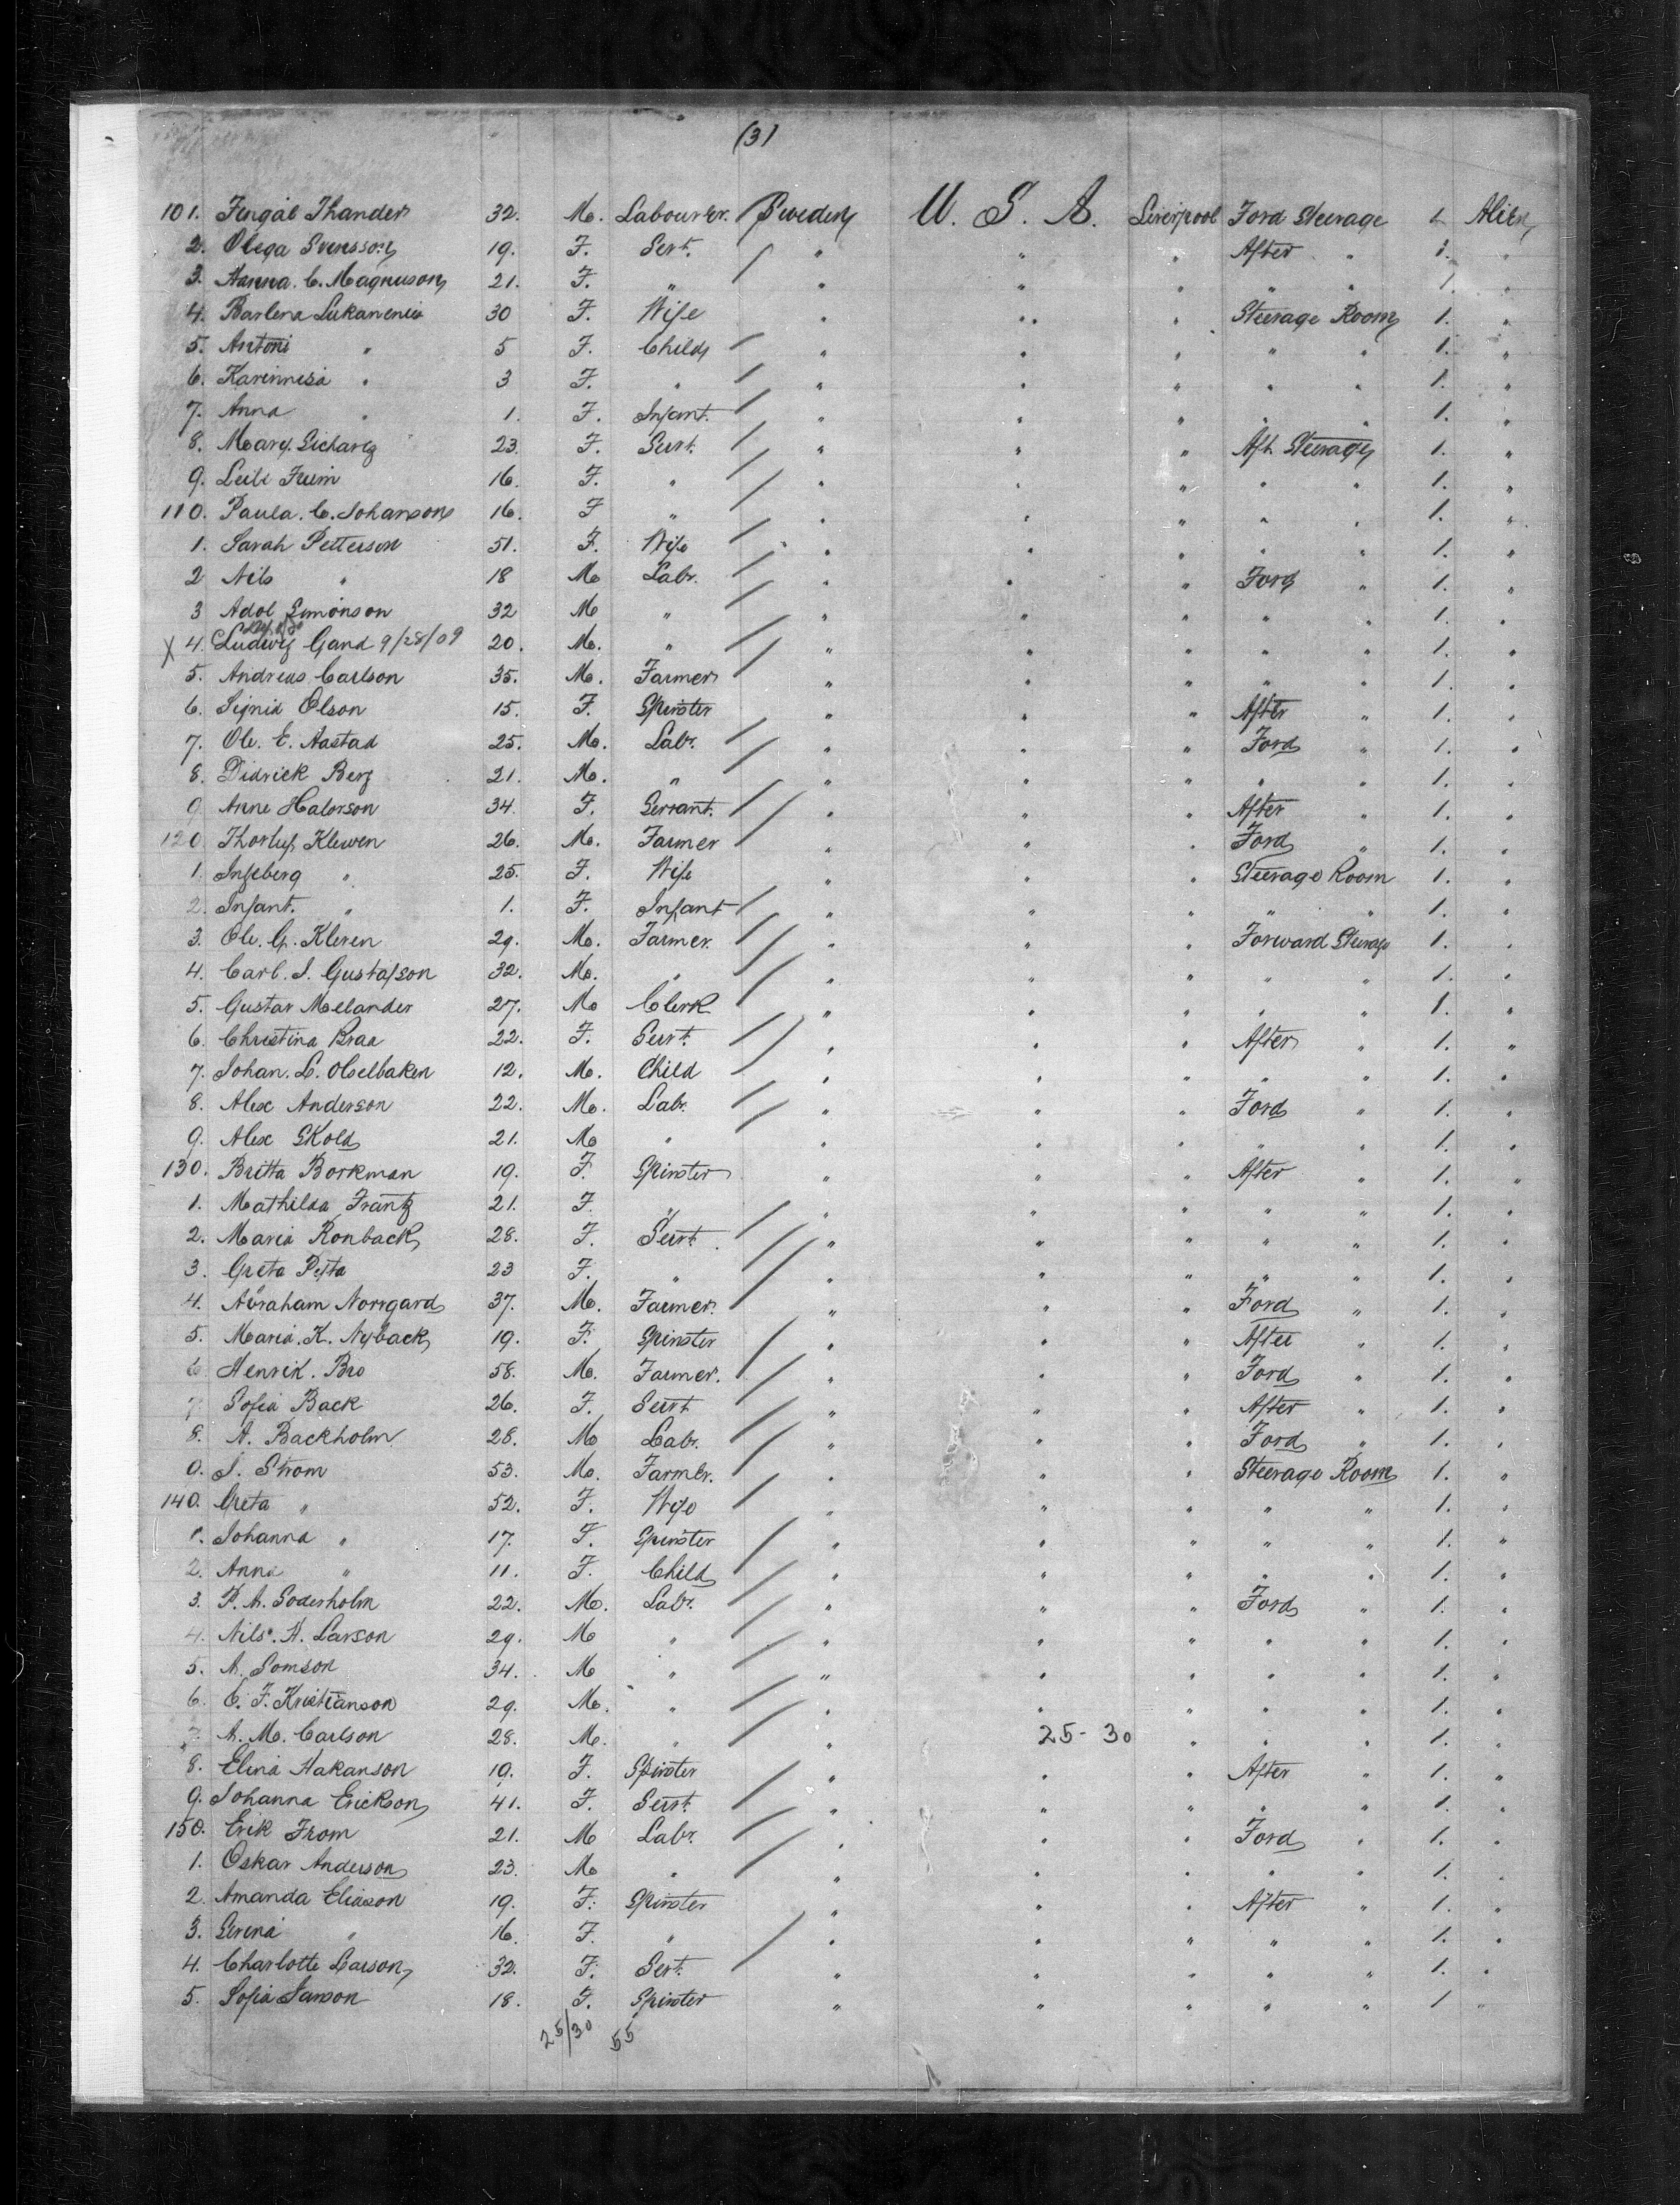 (3)
101. Fingal Thander 32. M. Labourer. Sweden U. S. A. Liverpool Ford Steerage 1. Alien
2. Olega Svensson 19. F. Servt. " " " After " 1. "
3. Hanna. C. Magnuson 21. F. " " " " " " 1. "
4. Barlena Lukanenio 30 F. Wife " " " Steerage Room 1. "
5. Antoni " 5 F. Child " " " " " 1. "
6. Karinnesia " 3 F. " " " " " " 1. "
7. Anna " 1. F. Infant. " " " " " 1. "
8. Mary. 23. F. Servt. " " " Aft Steerage 1. "
9. Leibe 16. F. " " " " " " 1. "
110. Paula. C. Johanson 16. F " " " " " " 1. "
1. Sarah Petterson 51. F. Wife " " " " " 1. "
2 Nils " 18 M Labr. " " " Ford " 1. "
3 Adol Simonson 32 M " " " " " " 1. "
X 4. Ludwig Gand 9/28/09 20. M. " " " " " " 1. "
5. Andreas Carlson 35. M. Farmer " " " " " 1. "
6. Signid Olson 15. F. Spinster " " " After " 1. "
7. Ole. E. Aastad 25. M. Labr. " " " Ford " 1. "
8. Didrick Berg 21. M. " " " " " " 1. "
9 Anne Halorson 34. F. Servant. " " " After " 1. "
120 Thorluf Klewen 26. M. Farmer " " " Ford " 1. "
1. Ingeberg " 25. F. Wife " " " Steerage Room 1. "
2. Infant. " 1. F. Infant " " " " " 1. "
3. Ole. G. Kleven 29. M. Farmer. " " " Forward Steerage 1. "
4. Carl. J. Gustafson 32. M. " " " " " " 1. "
5. Gustav Mellander 27. M Clerk " " " " " 1. "
6. Christina Braa 22. F. Servt. " " " After " 1. "
7. Johan. L. Olselbaken 12. M. Child " " " " " 1. "
8. Alex Anderson 22. M. Labr. " " " Ford " 1. "
9. Alex Skold 21. M " " " " " " 1. "
130. Britta Borkman 19. F. Spinster " " " After " 1. "
1. Mathilda Frantz 21. F. " " " " " " 1. "
2. Maria Ronback 28. F. Servt. " " " " " 1. "
3. Greta Pesta 23 F. " " " " " " 1. "
4. Abraham Norrgard 37. M. Farmer. " " " Ford " 1. "
5. Maria. K. Nyback 19. F. Spinster " " " After " 1. "
6 Henrik. Bro 58. M. Farmer. " " " Ford " 1. "
7. Sofia Back 26. F. Servt " " " After " 1. "
8. A. Backholm 28. M Labr. " " " Ford " 1. "
9. J. Strom 53. M. Farmer. " " " Steerage Room 1. "
140. Greta " 52. F. Wife " " " " " 1. "
1. Johanna " 17. F. Spinster " " " " " 1. "
2. Anna " 11. F. Child " " " " " 1. "
3. P. A. Soderholm 22. M. Labr. " " " Ford " 1. "
4. Nils. A. Larson 29. M " " " " " " 1. "
5. A. Somson 34. M " " " " " " 1. "
6. C. F. Kristianson 29. M. " " " " " " 1. "
7. A. M. Carlson 28. M. " " 25-30 " " " 1. "
8. Elina Hakanson 19. F. Spinster " " " After " 1. "
9. Johanna Erickson 41. F. Servt. " " " " " 1. "
150. Erik From 21. M Labr. " " " Ford " 1. "
1. Oskar Anderson 23. M " " " " " " 1. "
2. Amanda Eliason 19. F. Spinster " " " After " 1. "
3. Serena " 16. F. " " " " " " 1. "
4. Charlotte Larson 32. F. Servt. " " " " " 1. "
5. Sofia Larson 18. F. Spinster " " " " " 1 "
25/30 55